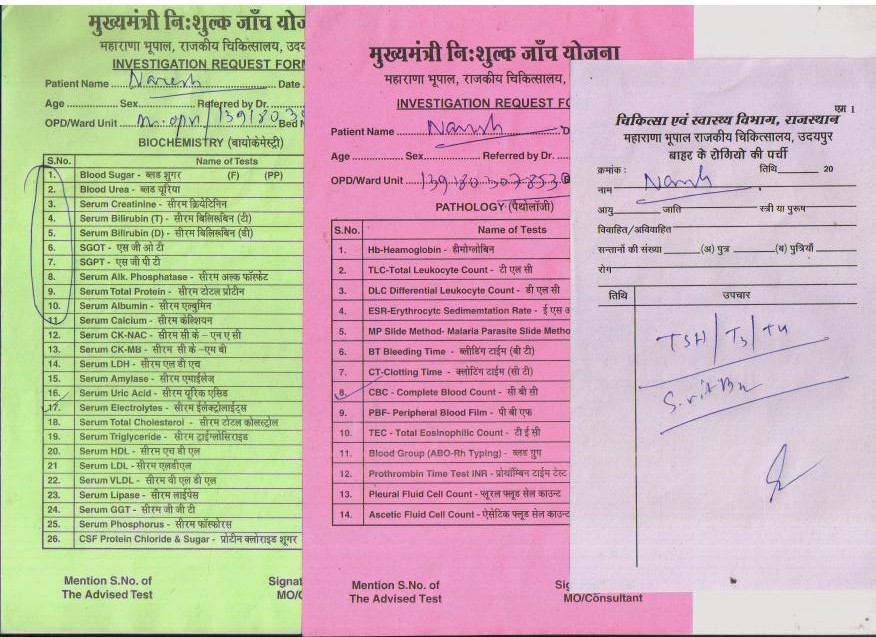 मुख्यमंत्री निःशुल्क जाँच योज
महाराणा भूपाल, राजकीय चिकित्सालय, उदय
INVESTIGATION REQUEST FORM
Patient Name Naresh Date
Age Sex Referred by Dr.
OPD/Ward Unit Bed N
BIOCHEMISTRY (बायोकेमेस्ट्री)
S.No. Name of Tests
1. Blood Sugar - ब्लड शुगर (F) (PP)
2. Blood Urea - ब्लड यूरिया
3. Serum Creatinine - सीरम क्रियेटिनिन
4. Serum Bilirubin (T) - सीरम बिलिरूबिन (टी)
5. Serum Bilirubin (D) - सीरम बिलिरूबिन (डी)
6. SGOT - एस जी ओ टी
7. SGPT - एस जी पी टी
8. Serum Alk. Phosphatase - सीरम अल्क फॉस्फेट
9. Serum Total Protein - सीरम टोटल प्रोटीन
10. Serum Albumin - सीरम एल्बुमिन
11. Serum Calcium - सीरम केल्शियन
12. Serum CK-NAC - सीरम सी के - एन ए सी
13. Serum CK-MB - सीरम सी के -एम बी
14. Serum LDH - सीरम एल डी एच
15. Serum Amylase - सीरम एमाईलेज
16. Serum Uric Acid - सीरम यूरिक एसिड
17. Serum Electrolytes - सीरम ईलेक्ट्रोलाईट्स
18. Serum Total Cholesterol - सीरम टोटल कोलस्ट्रोल
19. Serum Triglyceride - सीरम ट्राईग्लोसिराइड
20. Serum HDL - सीरम एच डी एल
21 Serum LDL - सीरम एलडीएल
22. Serum VLDL - सीरम वी एल डी एल
23. Serum Lipase - सीरम लाईपेस
24. Serum GGT - सीरम जी जी टी
25. Serum Phosphorus - सीरम फॉस्फोरस
26. CSF Protein Chloride & Sugar - प्रोटीन क्लोराइड शूगर
Mention S.No. of Signat
The Advised Test MO/C
मुख्यमंत्री निःशुल्क जाँच योजना
महाराणा भूपाल, राजकीय चिकित्सालय,
INVESTIGATION REQUEST FO
Patient Name Naresh
Age Sex Referred by Dr.
OPD/Ward Unit 139180307853
PATHOLOGY (पैथोलॉजी)
S.No. Name of Tests
1. Hb-Heamoglobin - हीमोग्लोबिन
2. TLC-Total Leukocyte Count - टी एल सी
3. DLC Differential Leukocyte Count - डी एल सी
4. ESR-Erythrocyte Sedimemtation Rate - ई एस
5. MP Slide Method- Malaria Parasite Slide Metho
6. BT Bleeding Time - ब्लीडिंग टाईम (बी टी)
7. CT-Clotting Time - क्लोटिंग टाईम (सी टी)
8. CBC - Complete Blood Count - सी बी सी
9. PBF- Peripheral Blood Film - पी बी एफ
10. TEC - Total Eosinophilic Count - टी ई सी
11. Blood Group (ABO-Rh Typing) - ब्लड ग्रुप
12. Prothrombin Time Test INR - प्रोथॉम्बिन टाईम टेस्ट
13. Pleural Fluid Cell Count - प्लूरल फ्लूड सेल काउन्ट
14. Ascetic Fluid Cell Count - ऐसेटिक फ्लूड सेल काउन्ट
Mention S.No. of Sig
The Advised Test MO/Consultant
एम 1
चिकित्सा एवं स्वास्थ्य विभाग, राजस्थान
महाराणा भूपाल राजकीय चिकित्सालय, उदयपुर
बाहर के रोगियो की पर्ची
क्रमांक : तिथि 20
नाम Naresh
आयु जाति स्त्री या पुरूष
विवाहित/अविवाहित
सन्तानों की संख्या (अ) पुत्र (ब) पुत्रियाँ
रोग
तिथि उपचार
TSH/T3/T4